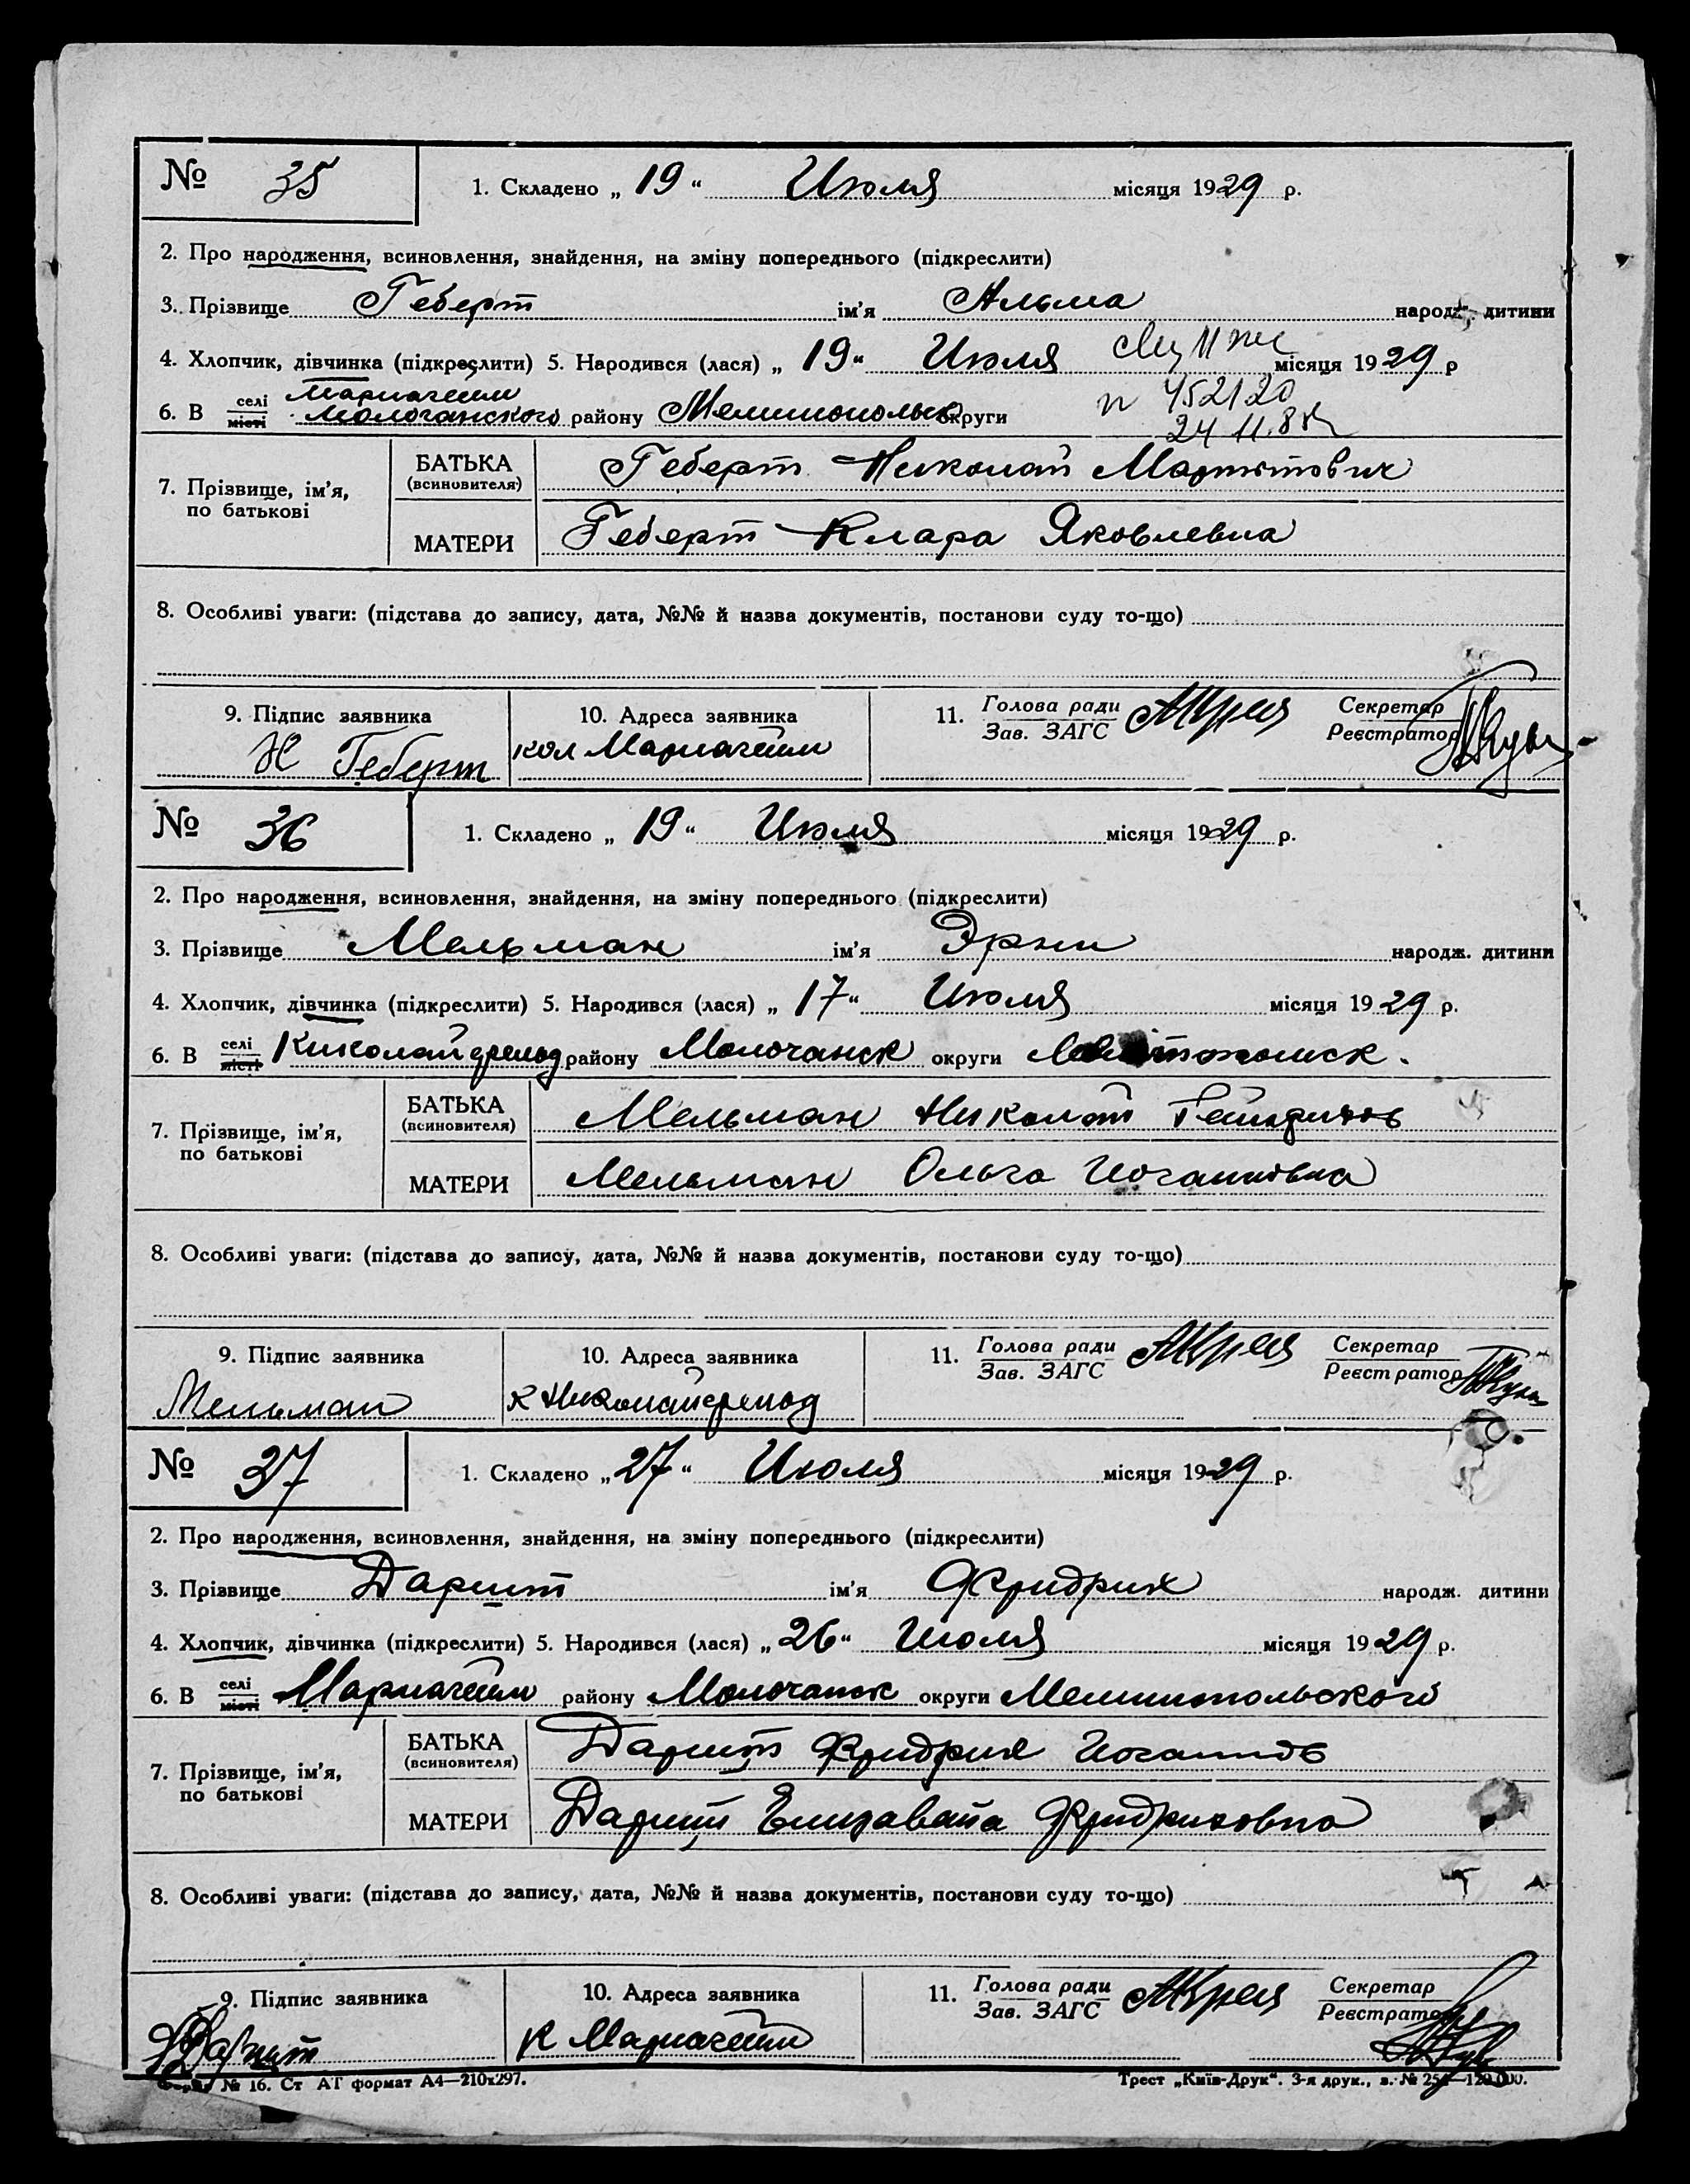 № 35 1. Складено „ 19 “ Июля місяця 1929 р.
2. Про народження, всиновлення, знайдення, на зміну попереднього (підкреслити)
3. Прізвище Геберт ім'я Альма народж. дитини
4. Хлопчик, дівчинка (підкреслити) 5. Народився (лася) „ 19 “ Июля місяця 1929 р
Мариагейм
6. В селі місті Молочанского району Мелитопольск округи
452120
24 11.88
7. Прізвище, ім'я, по батькові
БАТЬКА (всиновителя) Геберт Николай Мартынович
МАТЕРИ Геберт Клара Яковлевна
8. Особливі уваги: (підстава до запису, дата, №№ й назва документів, постанови суду то-що)
9. Підпис заявника 10. Адреса заявника 11. Голова ради Зав. ЗАГС Секретар Реєстратор
Н Геберт кол Мариагейм
№ 36 1. Складено „ 19 “ Июля місяця 1929 р.
2. Про народження, всиновлення, знайдення, на зміну попереднього (підкреслити)
3. Прізвище Мельман ім'я Эрни народж. дитини
4. Хлопчик, дівчинка (підкреслити) 5. Народився (лася) „ 17 “ Июля місяця 1929 р.
6. В селі місті району Молочанск округи
7. Прізвище, ім'я, по батькові
БАТЬКА (всиновителя) Мельман Николай
МАТЕРИ Мельман Ольга Иоганновна
8. Особливі уваги: (підстава до запису, дата, №№ й назва документів, постанови суду то-що)
9. Підпис заявника 10. Адреса заявника 11. Голова ради Зав. ЗАГС Секретар Реєстратор
Мельман к
№ 37 1. Складено „ 27 “ Июля місяця 1929 р.
2. Про народження, всиновлення, знайдення, на зміну попереднього (підкреслити)
3. Прізвище Даршт ім'я Фридрих народж. дитини
4. Хлопчик, дівчинка (підкреслити) 5. Народився (лася) „ 26 “ Июля місяця 1929 р.
6. В селі місті Мариагейм району Молочанск округи Мелитопольского
7. Прізвище, ім'я, по батькові
БАТЬКА (всиновителя) Даршт Фридрих Иоганнов
МАТЕРИ Даршт Елизавета Фридриховна
8. Особливі уваги: (підстава до запису, дата, №№ й назва документів, постанови суду то-що)
9. Підпис заявника 10. Адреса заявника 11. Голова ради Зав. ЗАГС Секретар Реєстратор
Даршт К Мариагейм
Форма № 16. Ст АГ формат А4—210х297. Трест „Київ-Друк“. 3-я друк., з. №